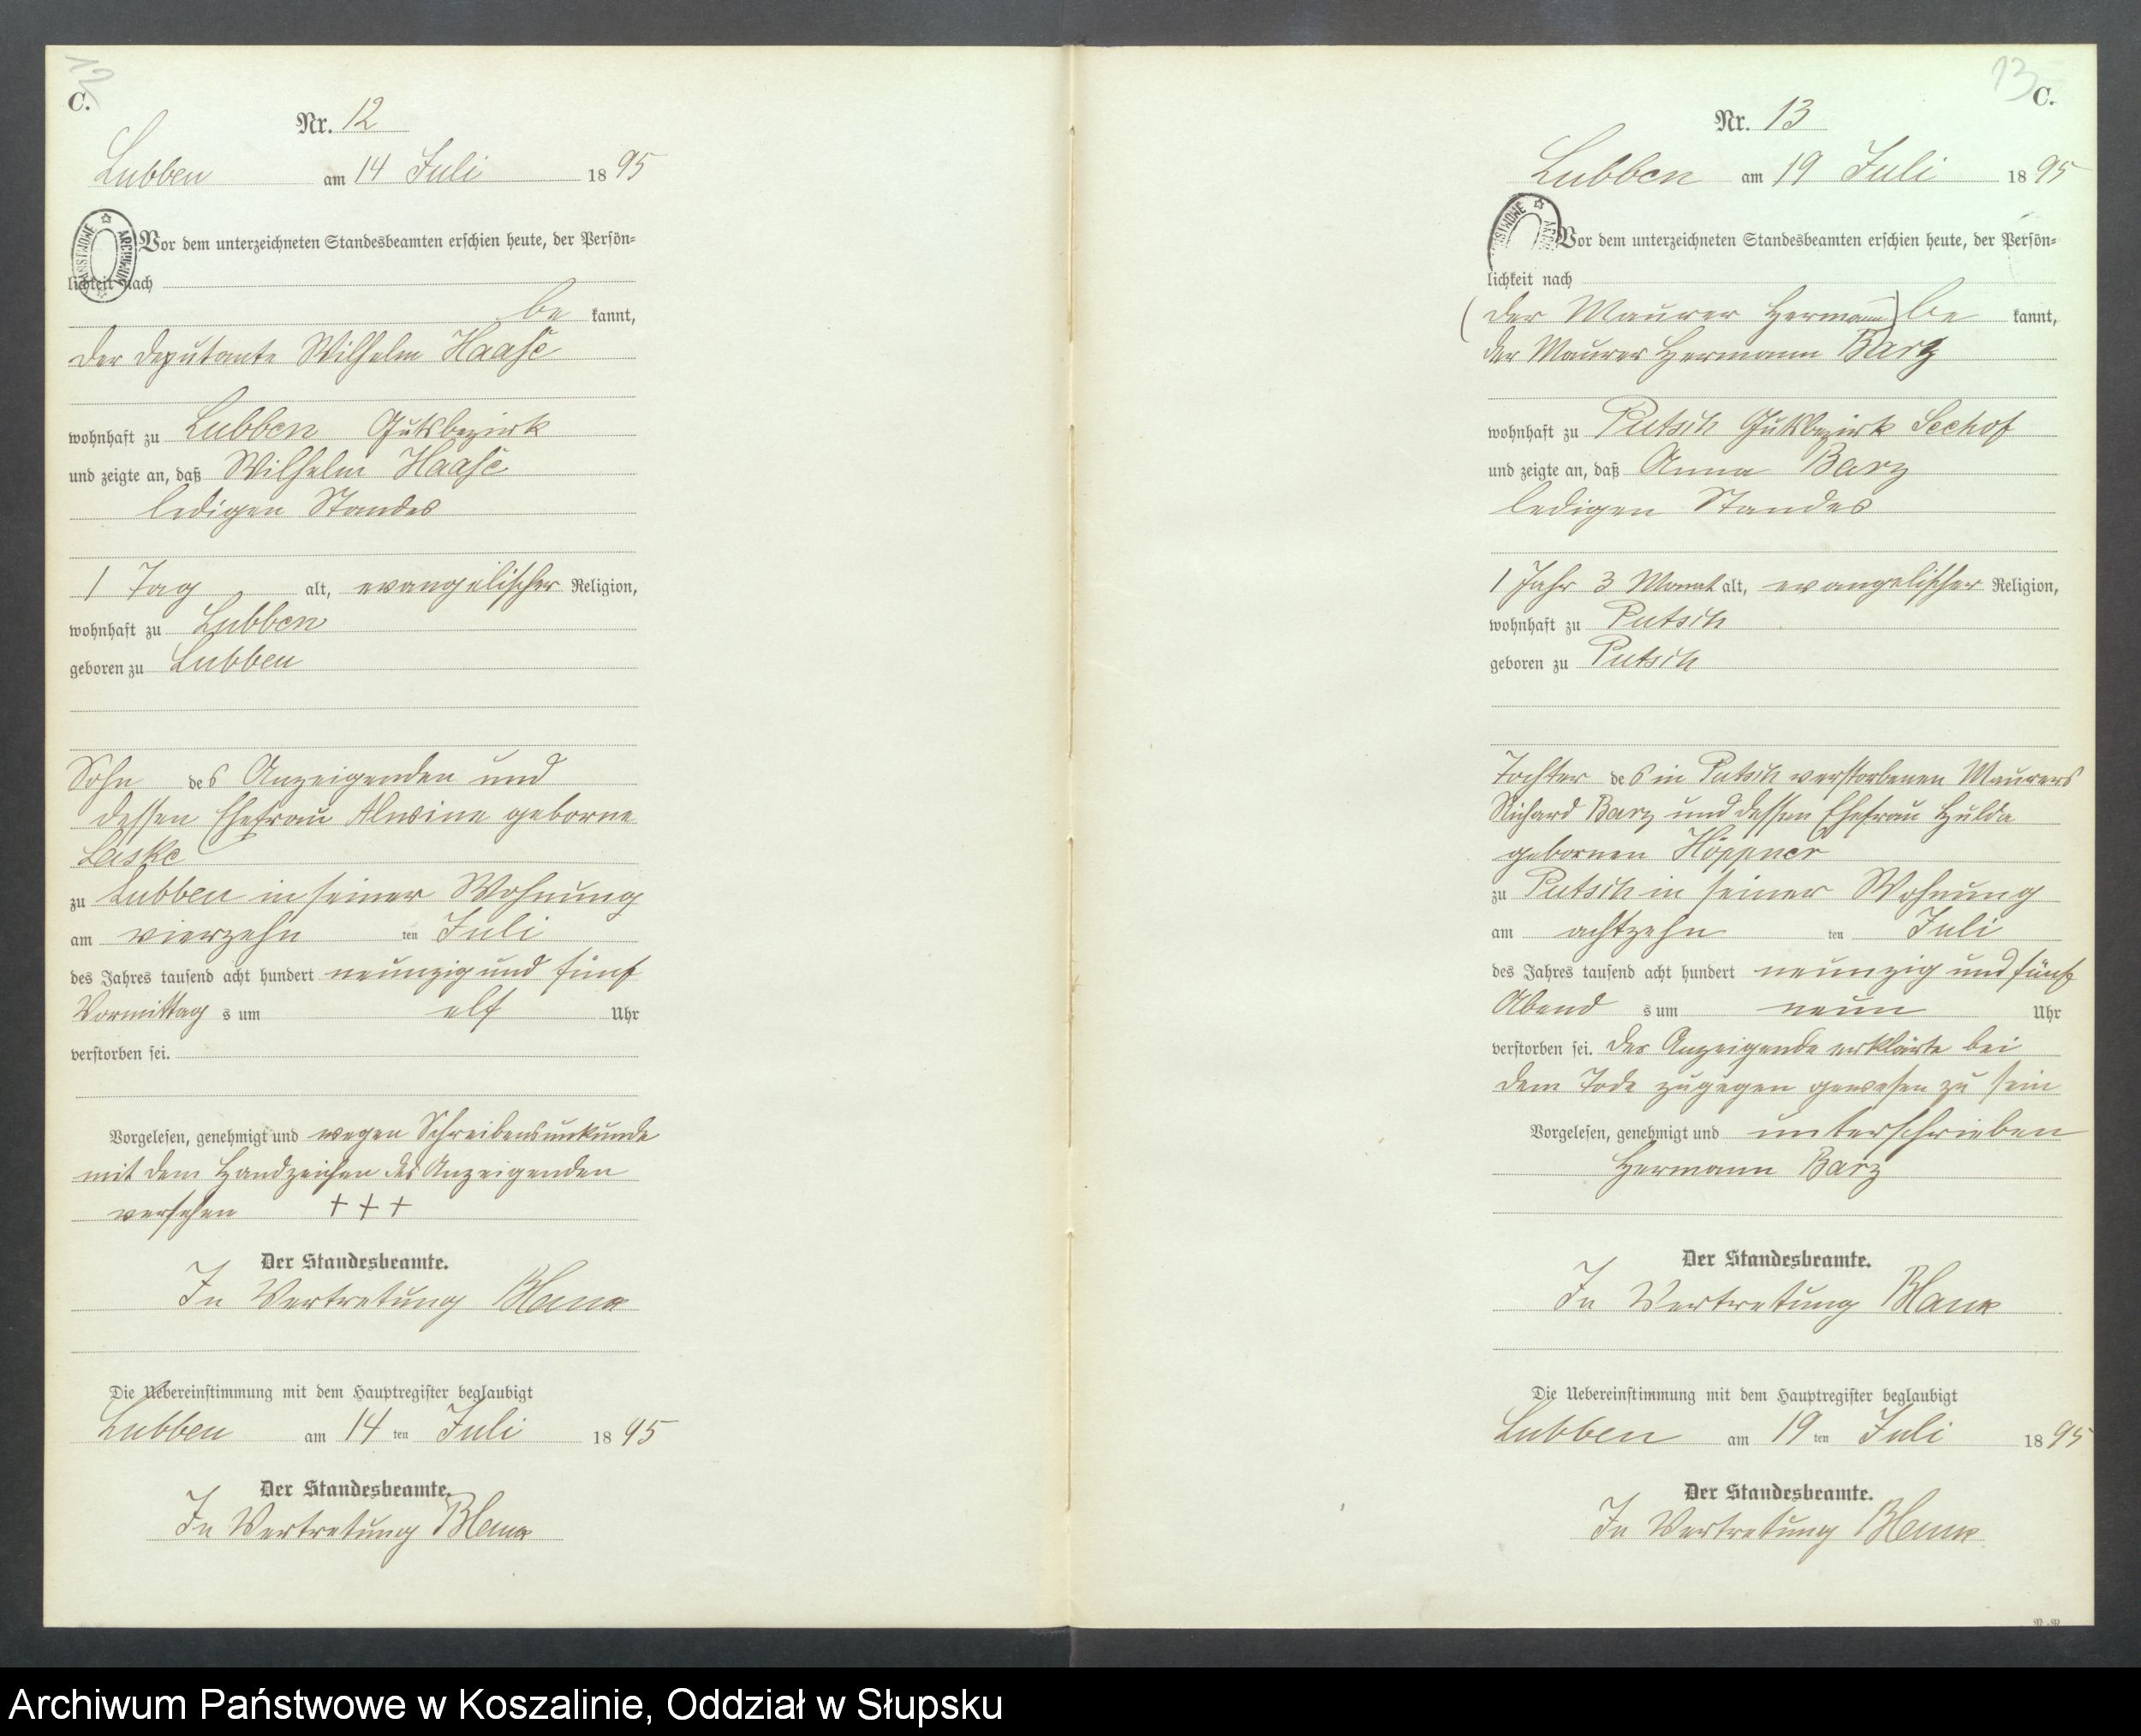 12
C.
Nr. 12
Lubben am 14 Juli 1895
Vor dem unterzeichneten Standesbeamten erschien heute, der Persön=
lichkeit nach
be kannt,
der Deputante Wilhelm Haase
wohnhaft zu Lubben Gutsbezirk
und zeigte an, daß Wilhelm Haase
ledigen Standes
1 Tag alt, evangelischer Religion,
wohnhaft zu Lubben
geboren zu Lubben
Sohn des Anzeigenden und
dessen Ehefrau Alwine geborne
Laske
zu Lubben in seiner Wohnung
am vierzehn ten Juli
des Jahres tausend acht hundert neunzig und fünf
Vormittag s um elf Uhr
verstorben sei.
Vorgelesen, genehmigt und wegen Schreibensunkunde
mit dem Handzeichen des Anzeigenden
versehen + + +
Der Standesbeamte.
In Vertretung Blank
Die Uebereinstimmung mit dem Hauptregister beglaubigt
Lubben am 14 ten Juli 1895
Der Standesbeamte.
In Vertretung Blank
13
C.
Nr. 13
Lubben am 19 Juli 1895
Vor dem unterzeichneten Standesbeamten erschien heute, der Persön=
lichkeit nach
(der Maurer Hermann) be kannt,
der Maurer Hermann Barz
wohnhaft zu Putsch Gutsbezirk Seehof
und zeigte an, daß Anna Barz
ledigen Standes
1 Jahr 3 Monat alt, evangelischer Religion,
wohnhaft zu Putsch
geboren zu Putsch
Tochter des in Putsch verstorbenen Maurers
Richard Barz und dessen Ehefrau Hulda
gebornen Höppner
zu Putsch in seiner Wohnung
am achtzehn ten Juli
des Jahres tausend acht hundert neunzig und fünf
Abend s um neun Uhr
verstorben sei. Der Anzeigende erklärte bei
dem Tode zugegen gewesen zu sein
Vorgelesen, genehmigt und unterschrieben
Hermann Barz
Der Standesbeamte.
In Vertretung Blank
Die Uebereinstimmung mit dem Hauptregister beglaubigt
Lubben am 19 ten Juli 1895
Der Standesbeamte.
In Vertretung Blank
Archiwum Państwowe w Koszalinie, Oddział w Słupsku